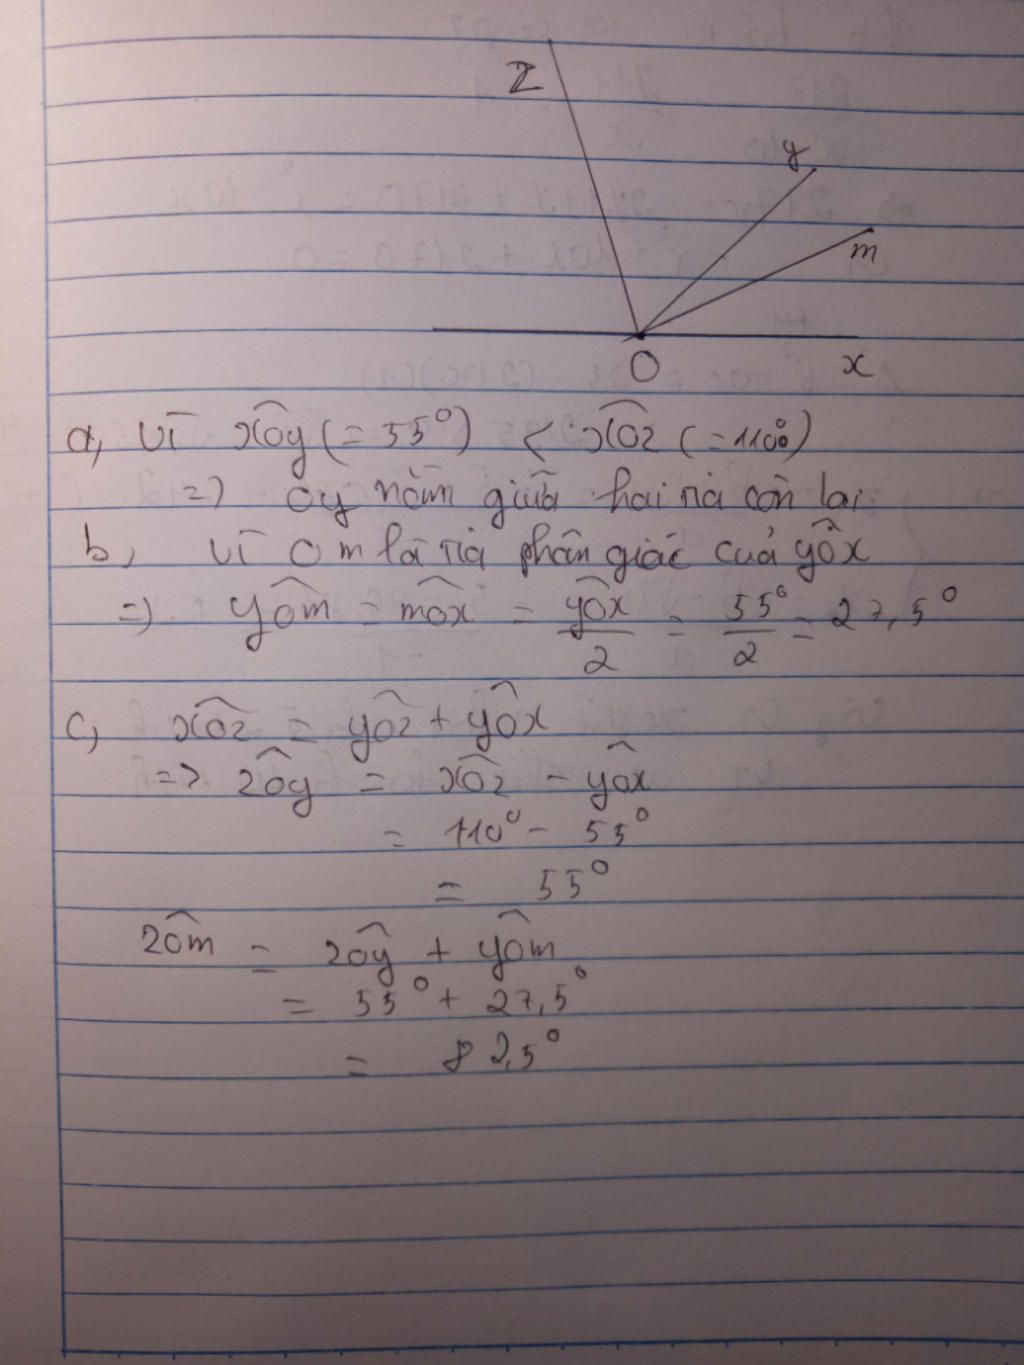 z
y
m
O
x
a, vì xÔy (= 55°) < xÔz (= 110°)
=> Oy nằm giữa hai tia còn lại
b, vì Om là tia phân giác của yÔx
=> yÔm = mÔx = yÔx/2 = 55°/2 = 27,5°
c, xÔz = yÔz + yÔx
=> zÔy = xÔz - yÔx
= 110° - 55°
= 55°
zÔm = zÔy + yÔm
= 55° + 27,5°
= 82,5°